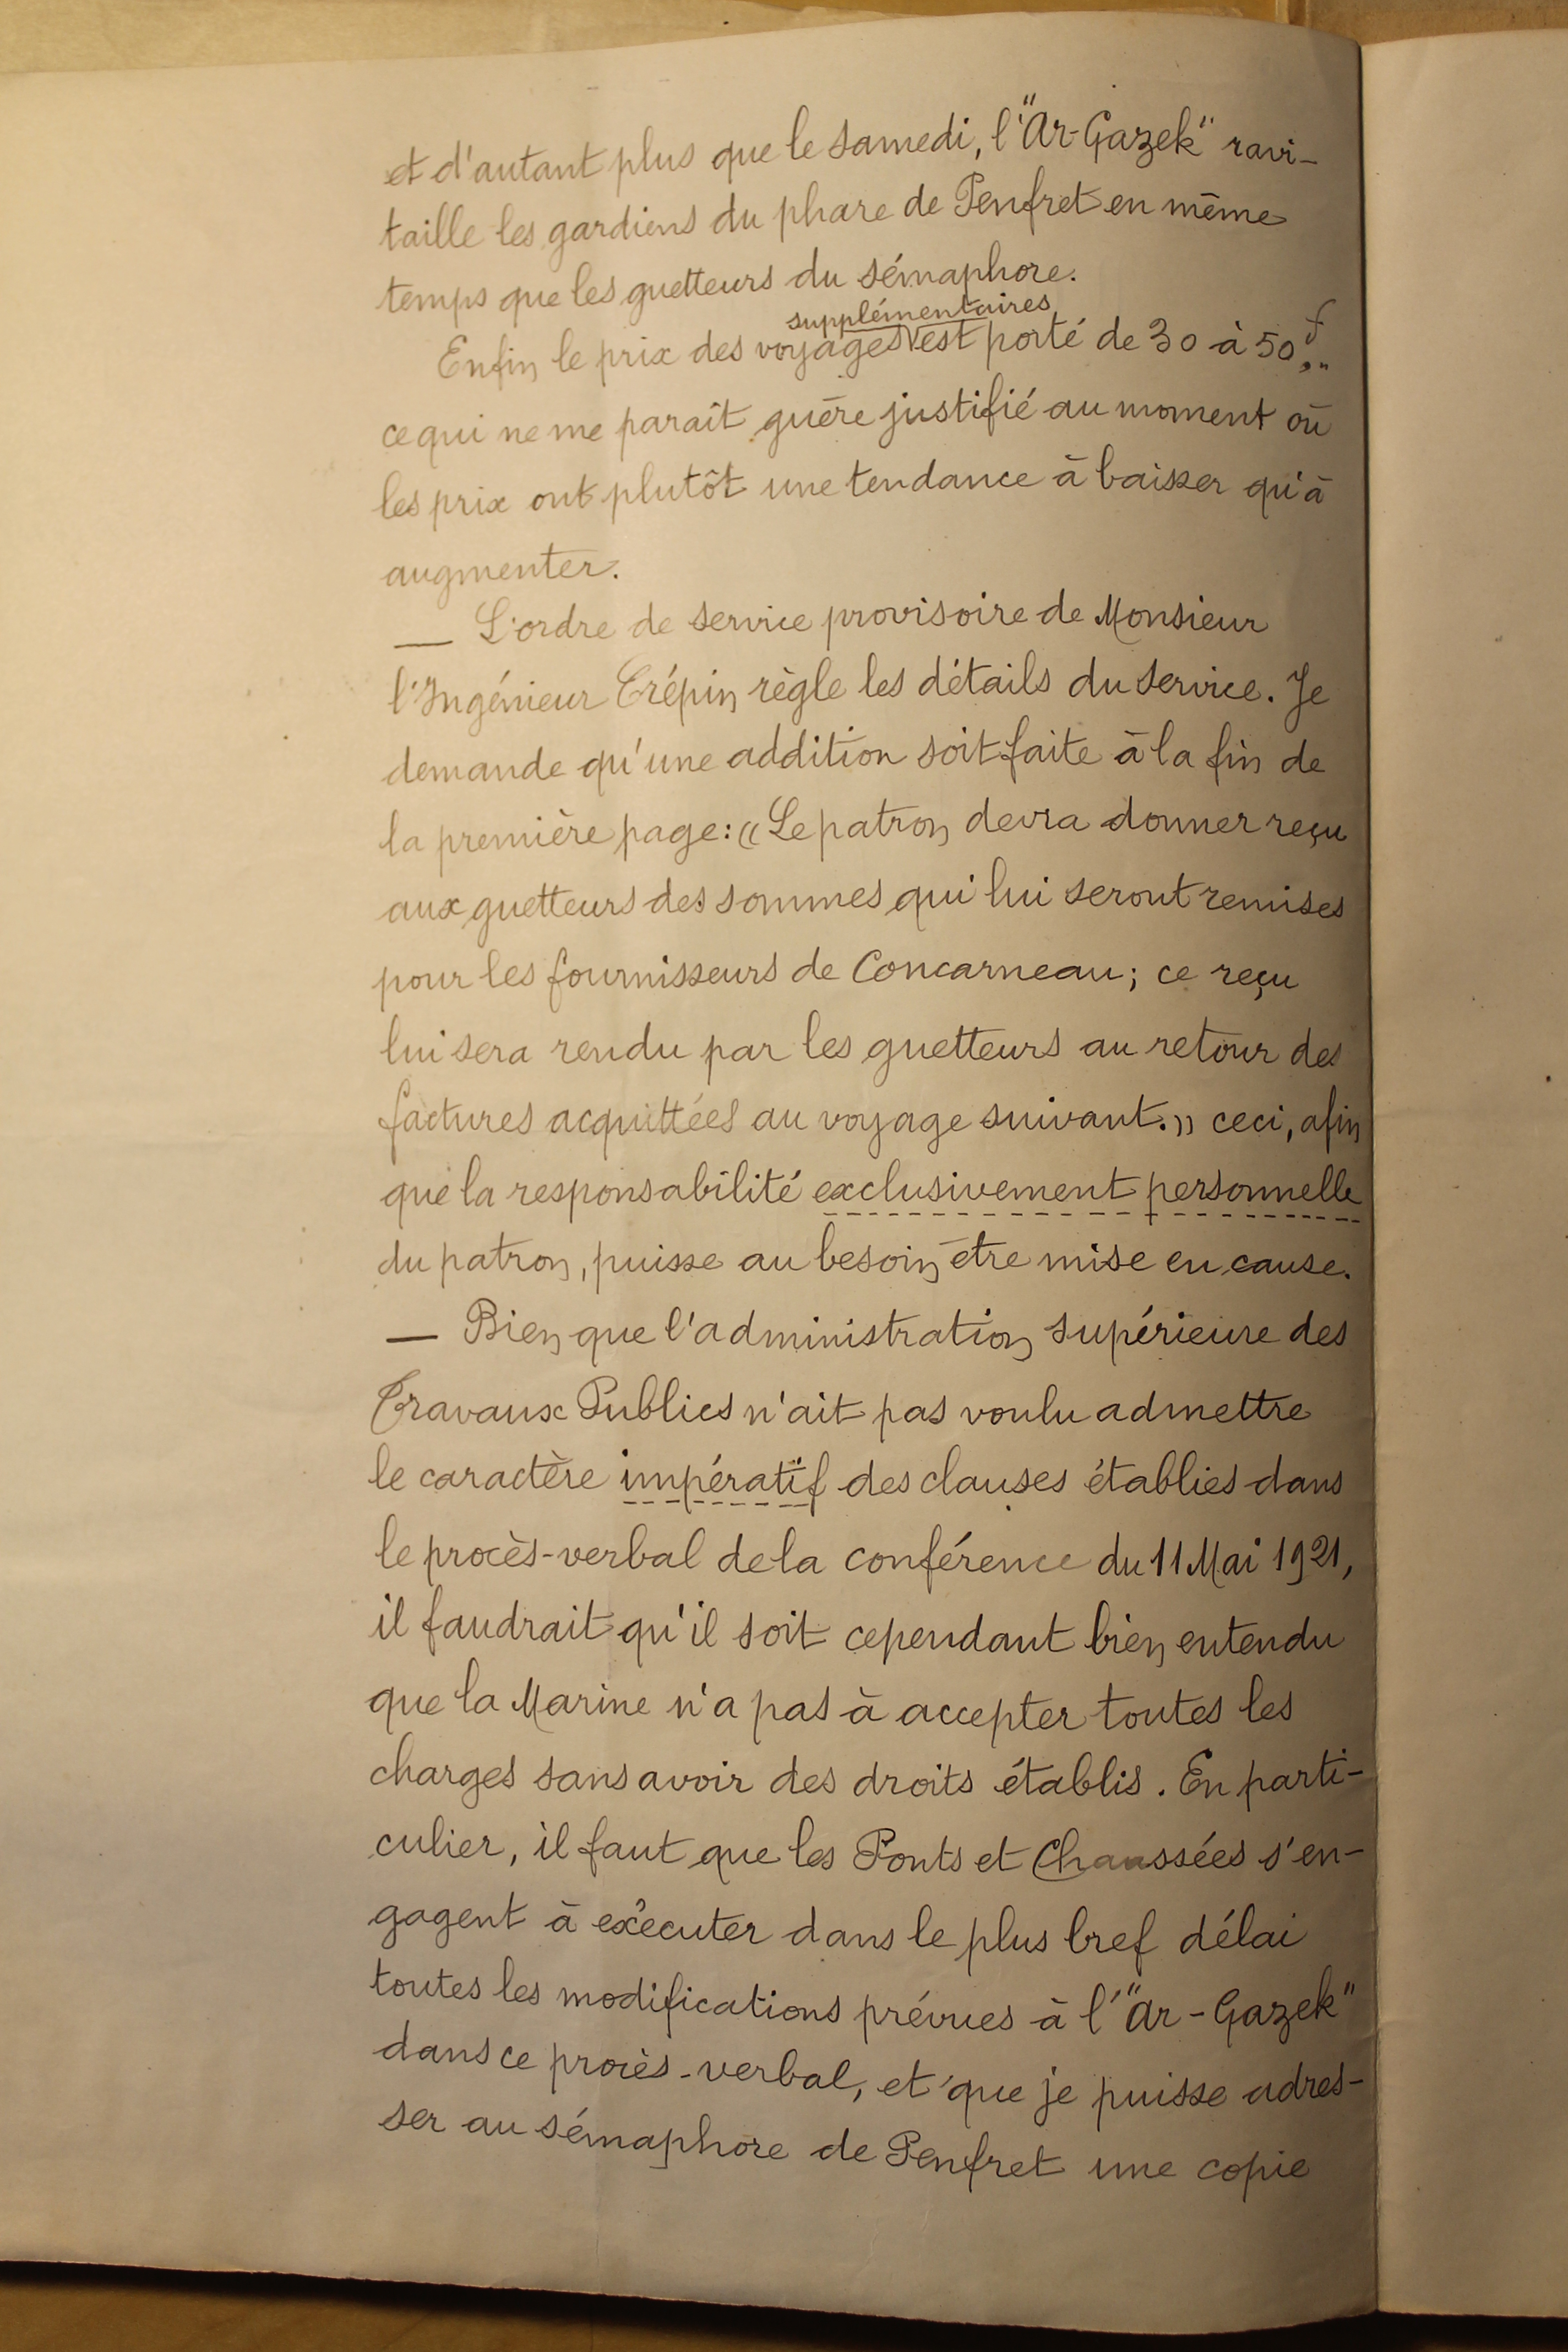 et d'autant plus que le samedi, l'"Ar-Gazek" ravi-
taille les gardiens du phare de Penfret en même
temps que les guetteurs du sémaphore.
supplémentaires
Enfin le prix des voyages est porté de 30 à 50f,,
ce qui ne me paraît guère justifié au moment où
les prix ont plutôt une tendance à baisser qu'à
augmenter.
— L'ordre de service provisoire de Monsieur
l'Ingénieur Crépin règle les détails du service. Je
demande qu'une addition soit faite à la fin de
la première page: «Le patron devra donner reçu
aux guetteurs des sommes qui lui seront remises
pour les fournisseurs de Concarneau; ce reçu
lui sera rendu par les guetteurs au retour des
factures acquittées au voyage suivant.» ceci, afin
que la responsabilité exclusivement personnelle
du patron, puisse au besoin être mise en cause.
— Bien que l'administration supérieure des
Travaux Publics n'ait pas voulu admettre
le caractère impératif des clauses établies dans
le procès-verbal de la conférence du 11 Mai 1921,
il faudrait qu'il soit cependant bien entendu
que la Marine n'a pas à accepter toutes les
charges sans avoir des droits établis. En parti-
culier, il faut que les Ponts et Chaussées s'en-
gagent à exécuter dans le plus bref délai
toutes les modifications prévues à l'"Ar-Gazek"
dans ce procès-verbal, et que je puisse adres-
ser au sémaphore de Penfret une copie